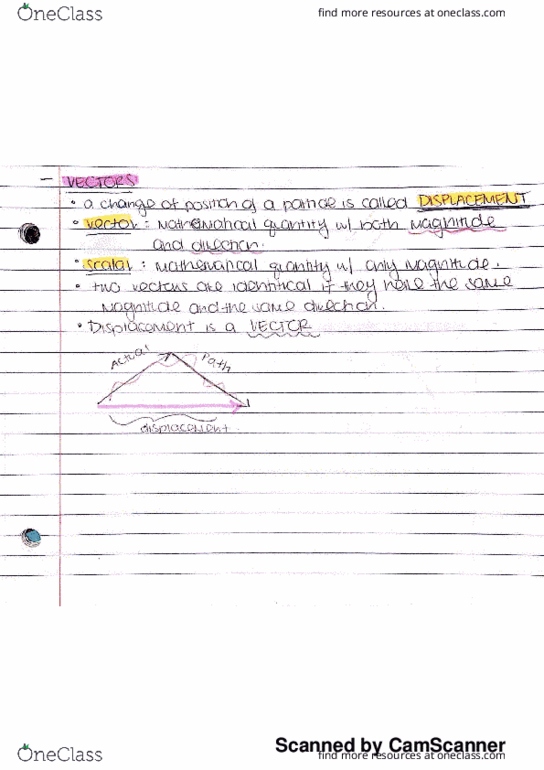 OneClass
find more resources at oneclass.com
– VECTORS
• a change of position of a particle is called DISPLACEMENT
• vector : mathematical quantity w/ both magnitude
and direction.
• scalar : mathematical quantity w/ only magnitude.
• two vectors are identitical if they have the same
magnitude and the same direction.
• Displacement is a VECTOR
Actual Path
displacement
Scanned by CamScanner
OneClass
find more resources at oneclass.com